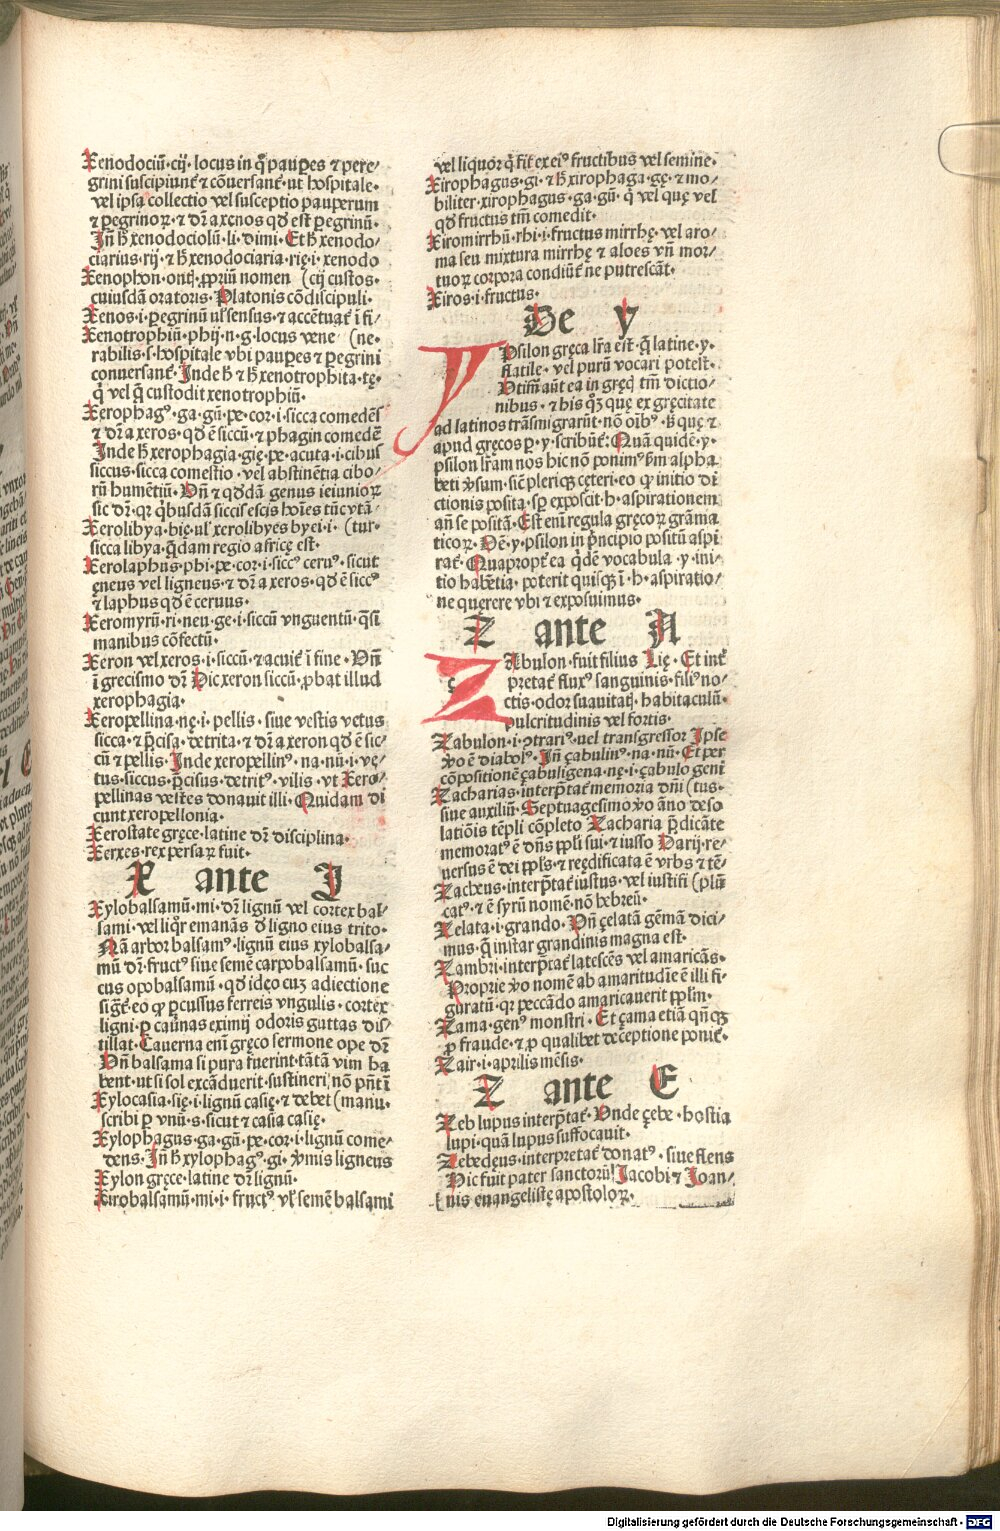 Xenodociū·cij·locus in q̄ paupes ⁊ pere/
grini suscipiunt᷑ ⁊ cōuersant᷑·ut hospitale·
vel ipsa collectio vel susceptio pauperum
⁊ pegrinoꝝ·⁊ dr̄ a xenos qd̄ est pegrinū·
Jn̄ h̄ xenodociolū·li·dimi·Et h̄ xenodo/
ciarius·rij·⁊ h̄ xenodociaria·rię·i·xenodo
Xenophon·ontꝭ·ꝓpriū nomen (cij custos·
cuiusdā oratoris·Platonis cōdiscipuli·
Xenos·i·pegrinū vl̓ sensus·⁊ accētuat᷑ ī fi/
Xenotrophiū·phij·n·g·locus vene (ne·
rabilis·s·hospitale vbi paupes ⁊ pegrini
conuersant᷑·Jnde h̄ ⁊ h̄ xenotrophita·tę·
q̓ vel q̄ custodit xenotrophiū·
Xerophagꝰ·ga·gū·pe·cor·i·sicca comedēs
⁊ dr̄ a xeros·qd̄ ē siccū·⁊ phagin comedē
Jnde h̄ xerophagia·gię·pe·acuta·i·cibus
siccus·sicca comestio·vel abstinētia cibo/
rū humētiū·Vn̄ ⁊ qd̄dā genus ieiunioꝝ
sic dr̄·qꝛ q̇busdā siccis escis hoīes tūc vtā/
Xerolibya·bię·ul̓ xerolibyes byei·i· (tur·
sicca libya·q̄dam regio africę est·
Xerolaphus·phi·pe·cor·i·siccꝰ ceruꝰ·sicut
ęneus vel ligneus·⁊ dr̄ a xeros·qd̄ ē siccꝰ
⁊ laphus qd̄ ē ceruus·
Xeromyrū·ri·neu·ge·i·siccū vnguentū·q̄si
manibus cōfectū·
Xeron vel xeros·i·siccū·⁊ acuit᷑ ī fine·Vn̄
ī grecismo dr̄ Dic xeron siccū·ꝓbat illud
xerophagia·
Xeropellina·nę·i·pellis·siue vestis vetus
sicca·⁊ p̄cisa·detrita·⁊ dr̄ a xeron qd̄ ē sic/
cū ⁊ pellis·Jnde xeropellinꝰ·na·nū·i·vę/
tus·siccus·p̄cisus·detritꝰ·vilis·vt Xero/
pellinas vestes donauit illi·Quidam di
cunt xeropellonia·
Xerostate gręce·latine dr̄ disciplina·
Xerxes·rex persaꝝ fuit·
X ante J
Xylobalsamū·mi·dr̄ lignū vel cortex bal/
sami·vel liq̓r emanās d̄ ligno eius trito·
Nā arbor balsamꝰ·lignū eius xylobalsa/
mū dr̄·fructꝰ siue semē carpobalsamū·suc
cus opobalsamū·qd̄ idęo cuꝫ adiectione
signt᷑·eo ꝙ pcussus ferreis vngulis·cortex
ligni·p cau̓nas eximij odoris guttas dis/
tillat·Cauerna enī gręco sermone ope dr̄
Vn̄ balsama si pura fuerint·tātā vim ha
bent·ut si sol excāduerit·sustineri nō pn̄t ī
Xylocasia·się·i·lignū casię·⁊ debet (manu·
scribi p vnū·s·sicut ⁊ casia casię·
Xylophagus·ga·gū·pe·cor·i·lignū come/
dens·Jn̄ h̄ xylophagꝰ·gi·v̓mis ligneus
Xylon gręce·latine dr̄ lignū·
Xirobalsamū·mi·i·fructꝰ vl̓ semē balsami
vel liquor q̇ fit᷑ ex eiꝰ fructibus vel semine·
Xirophagus·gi·⁊ h̄ xirophaga·gę·⁊ mo/
biliter·xirophagus·ga·gū·q̓ vel quę vel
qd̄ fructus tm̄ comedit·
Xiromirrhū·rhi·i·fructus mirrhę·vel aro/
ma seu mixtura mirrhę ⁊ aloes vn̄ mor/
tuoꝝ corpora condiūt᷑ ne putrescāt·
Xiros·i·fructus·
De y
Ypsilon gręca lr̄a est·q̄ latine·y·
flatile·vel purū vocari potest·
Vtimr̄ aūt ea in gręcꝭ tm̄ dictio/
nibus·⁊ his qꝫ quę ex gręcitate
ad latinos trāsmigrarūt·nō oībꝰ·s̄ quę ⁊
apud gręcos p·y·scribūt᷑·Quā quidē·y·
psilon lr̄am nos hic nō ponimꝰ s̄m alpha
beti v̓sum·sic̄ pleriqꝫ cęteri·eo ꝙ initio di
ctionis posita·sp exposcit·h·aspirationem
an̄ se positā·Est enī regula gręcoꝝ grāma
ticoꝝ·Oē·y·psilon in p̄ncipio positū aspi
rat᷑·Quapropt᷑ ea q̇dē vocabula·y·ini/
tio habētia·poterit quisqꝫ ī·h·aspiratio/
ne querere vbi ⁊ exposuimus·
Z ante A
Zabulon·fuit filius Lię·Et int᷑
pretat᷑ fluxꝰ sanguinis·filiꝰ no/
ctis·odor suauitatꝭ·habitaculū·
pulcritudinis vel fortis·
Zabulon·i·ꝯtrariꝰ·vel transgressor Jpse
v̓o ē diabolꝰ·Jn̄ çabulinꝰ·na·nū·Et per
cōpositionē çabuligena·nę·i·çabulo geni
Zacharias·interp̄tat᷑ memoria dn̄i (tus·
siue auxiliū·Septuagesimo v̓o āno deso
latiōis tēpli cōpleto Zacharia p̄dicāte
memoratꝰ ē dn̄s ppl̓i sui·⁊ iusso Darij·re/
uersus ē dei ppl̓s·⁊ reędificata ē vrbs ⁊ tē/
Zacheus·interp̄tat᷑ iustus·vel iustifi (plū
catꝰ·⁊ ē syrū nomē·nō hebreū·
Zelata·i·grando·Vn̄ çelatā gēmā dici/
mus·q̄ instar grandinis magna est·
Zambri·interp̄tat᷑ latescēs vel amaricās·
Proprie v̓o nomē ab amaritudīe ē illi fi/
guratū·qꝛ peccādo amaricauerit ppl̓m·
Zama·genꝰ monstri·Et çama etiā qn̄qꝫ
ꝓ fraude·⁊ ꝓ qualibet deceptione ponit᷑·
Zair·i·aprilis mēsis·
Z ante E
Zeb lupus interp̄tat᷑·Vnde çebe·hostia
lupi·quā lupus suffocauit·
Zebedęus·interpretat᷑ donatꝰ·siue flens
Hic fuit pater sanctorū Jacobi ⁊ Joan/
nis euangelistę apostoloꝝ·
Digitalisierung gefördert durch die Deutsche Forschungsgemeinschaft - DFG